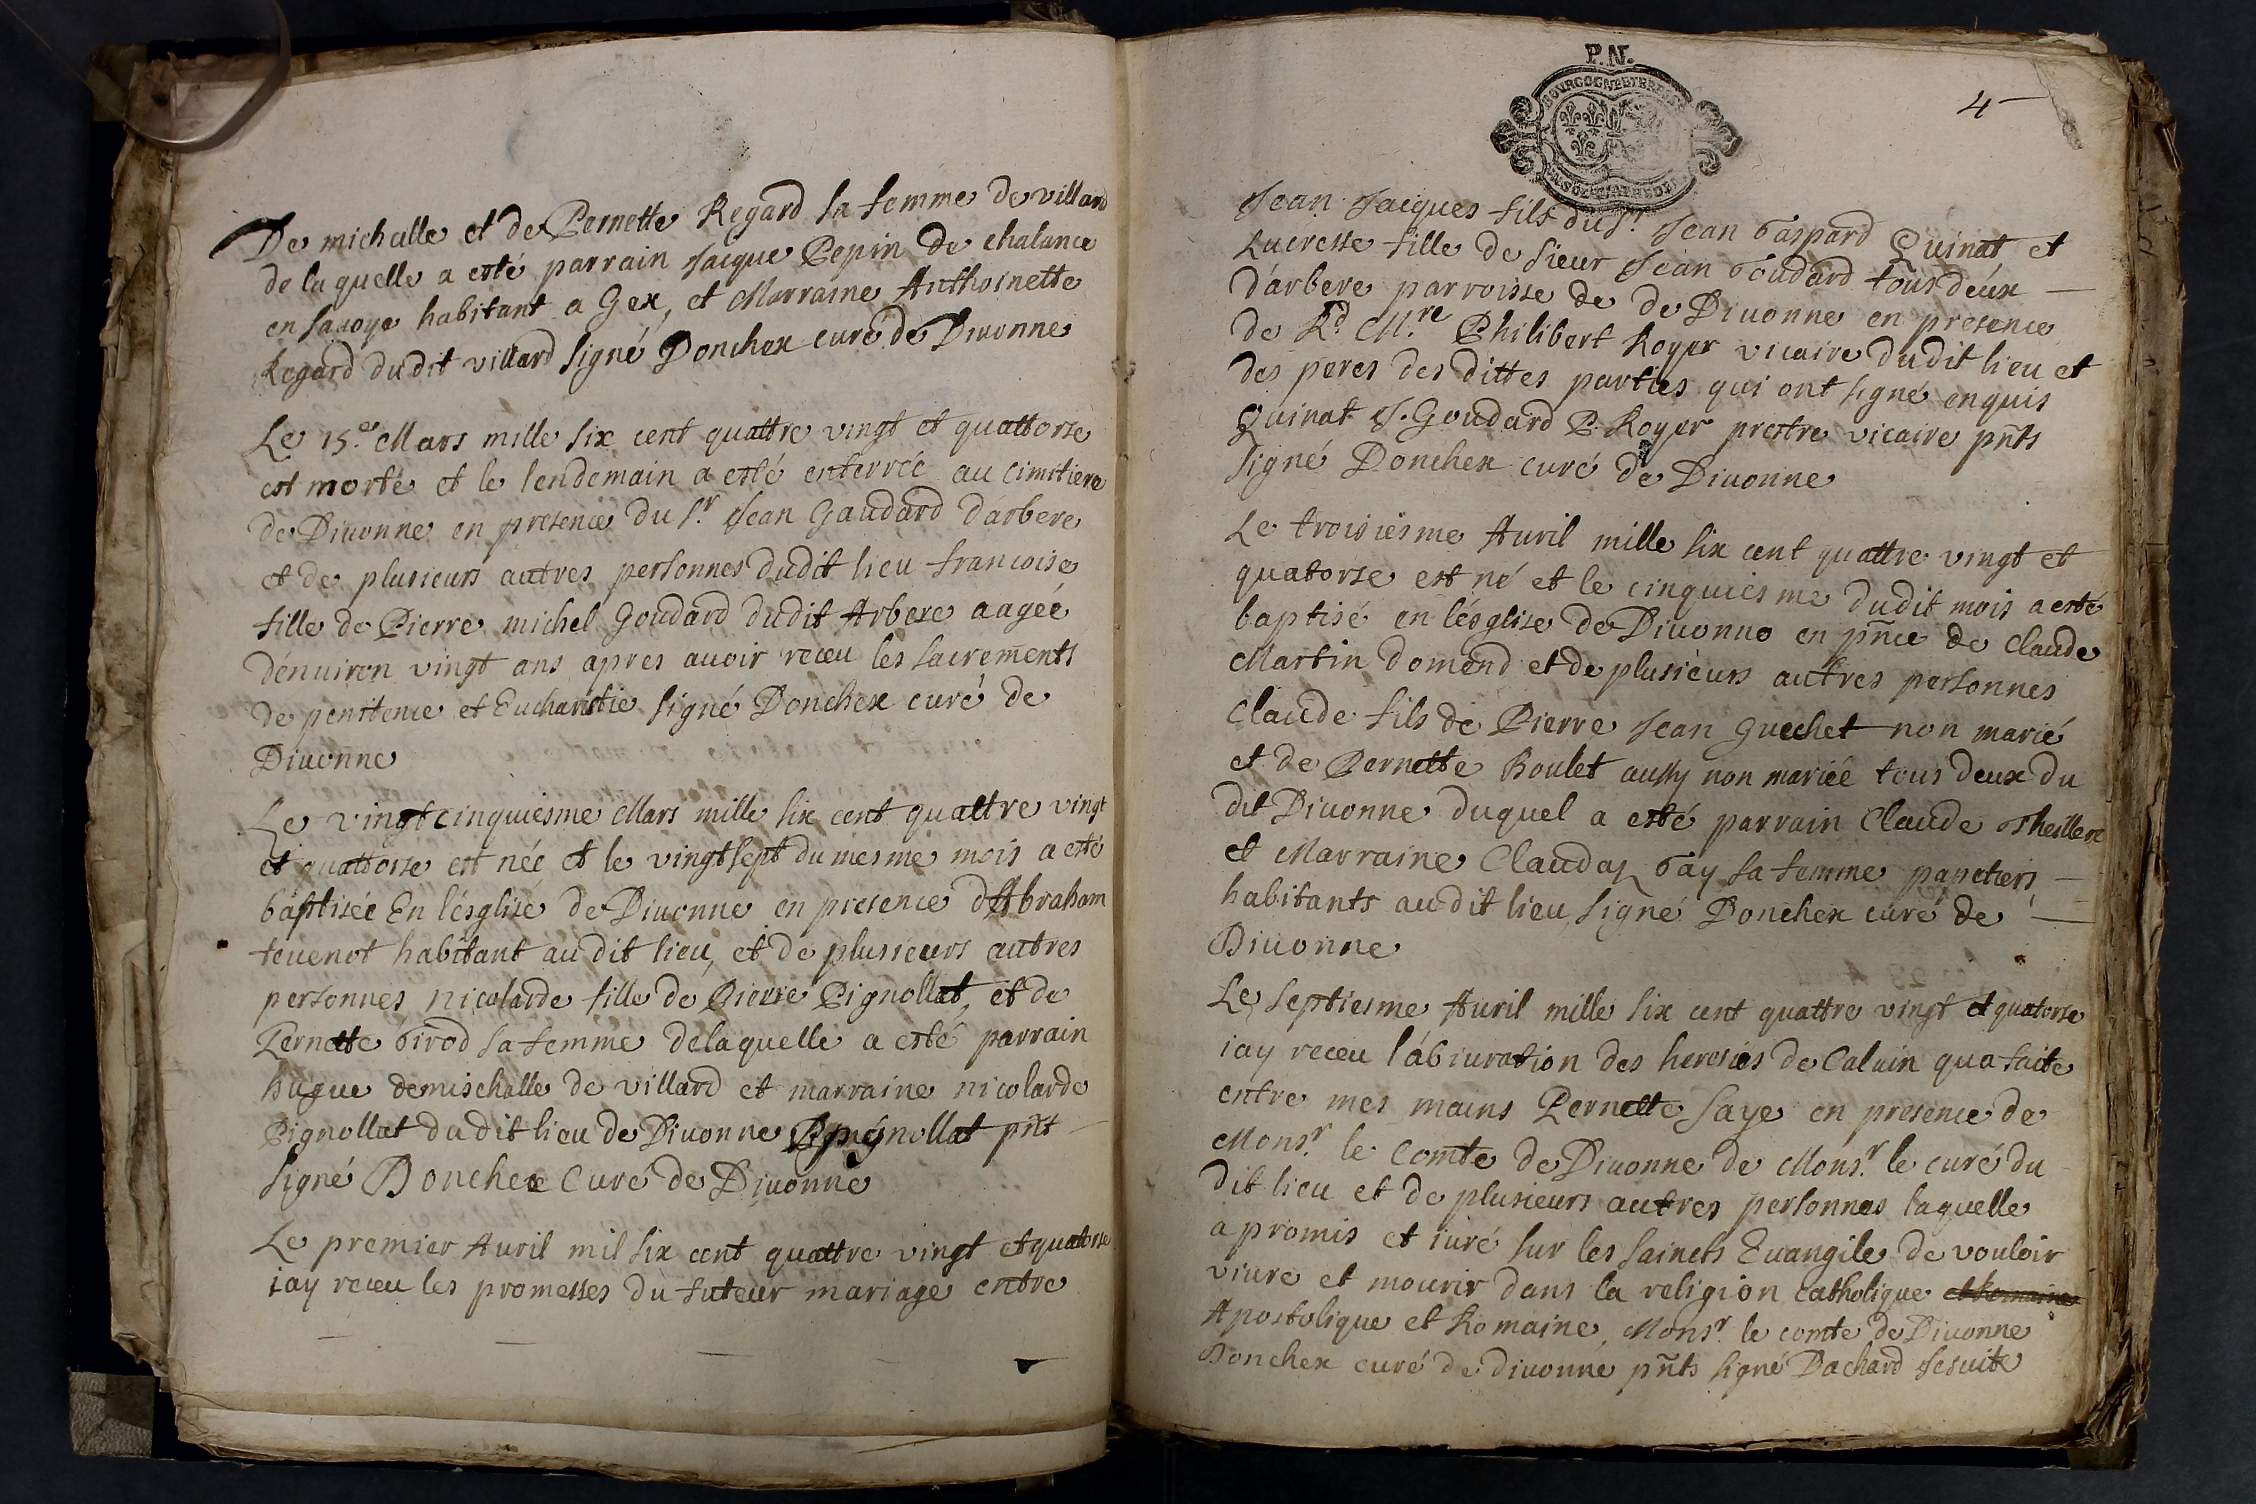 De michalle et de Pernette Regard sa femme de villard
de laquelle a esté parrain Jacque Pepin de chalance
en sauoye habitant a Gex, et Marraine Anthoinette
Regard dudit villard signé Donchex curé de Diuonne
Le 15.e Mars mille six cent quattre vingt et quattorse
est morte et le lendemain a esté enterrée au cimitiere
de Diuonne en presence du Sr. Jean Gaudard d'arbere
et de plusieurs autres personnes dudit lieu francoise
fille de Pierre michel Goudard dudit Arbere aageé
dénuiron vingt ans apres auoir receu les sacrements
de penitence et Eucharistie signé Donchex curé de
Diuonne
Le vingt cinquiesme Mars mille six cent quattre vingt
et quattorse est née et le vingt sept du mesme mois a esté
baptisée En l'ésglise de Diuonne en presence d'Abraham
teuenot habitant audit lieu, et de plusieurs autres
personnes nicolarde fille de Pierre Pignollat, et de
Pernette Girod sa femme delaquelle a esté parrain
hugue demischalle de villard et marraine nicolarde
Pignollat dudit lieu de Diuonne Pignollat pñt
signé Donchex Curé de Diuonne
Le premier Auril mil six cent quattre vingt et quatorse
iay receu les promesses du futeur mariage entre
P.N.
BOURGOGNE ET BRESSE
4
Jean Jacques fils du Sr. Jean Gaspard Quinat et
Lucresse fille de sieur Jean Goudard tous deux
d'arbere parroisse de de Diuonne en presence
de Rd. M.re Philibert Royer vicaire dudit lieu et
des peres des dittes parties qui ont signé enquis
Quinat J. Goudard P. Royer prestre vicaire pñts
signé Donchex curé de Diuonne
Le troisiesme Auril mille six cent quattre vingt et
quatorse est né et le cinquiesme dudit mois a esté
baptisé en l'ésglise de Diuonne en pñce de Claude
Martin domend et de plusieurs autres personnes
Claude fils de Pierre Jean Guechet non marié
et de Pernette Roulet aussy non mariée tous deux du
dit Diuonne duquel a esté parrain Claude
et Marraine Clauda Gay sa femme panetiers
habitants audit lieu signé Donchex curé de
Diuonne
Le septiesme Auril mille six cent quattre vingt et quatorse
iay receu l'ábiuration des heresies de Caluin qua faite
entre mes mains Pernette Saye en presence de
Monsr. le Comte de Diuonne de Monsr. le curé du
dit lieu et de plusieurs autres personnes laquelle
a promis et iuré sur les saincts Euangile de vouloir
viure et mourir dans la religion catholique et Romaine
Apostolique et Romaine, Monsr. le comte de Diuonne
Donchex curé de diuonne pñts signé Dachard Jesuite